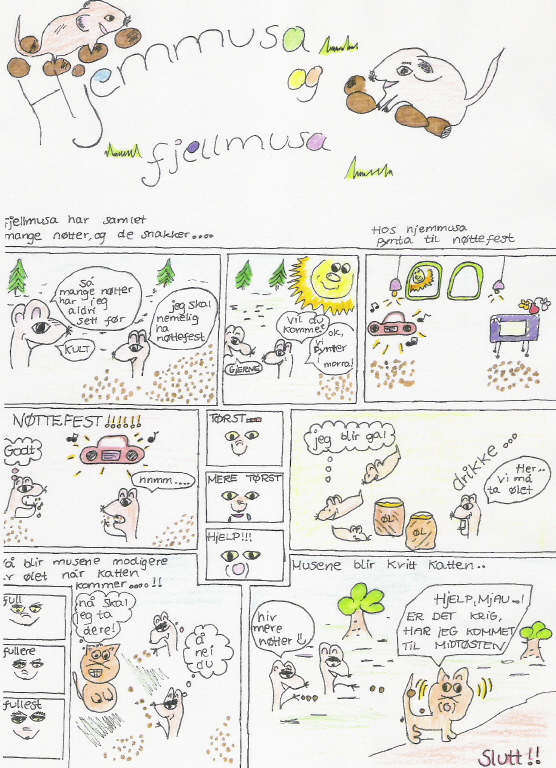 Hjemmusa
og
fjellmusa
fjellmusa har samlet
mange nøtter, og de snakker....
Hos hjemmusa
pynta til nøttefest
så
mange nøtter
har jeg
aldri
sett før
KULT
jeg skal
nemelig
ha
nøttefest
Vil du
komme?
GJERNE
ok,
vi
pynter
i
morra!
NØTTEFEST!!!!!!
Godt
hnmm....
TØRST....
MERE TØRST
HJELP!!!
jeg blir gal
drikke...
Her..
vi må
ta ølet
ØL
ØL
å blir musene modigere
ølet når katten
kommer....!!
Musene blir kvitt katten..
full
fullere
fullest
nå skal
jeg ta
dere!
å
nei
du
hiv
mere
nøtter!!
HJELP, MJAU..!
ER DET KRIG,
HAR JEG KOMMET
TIL MIDTØSTEN
Slutt!!